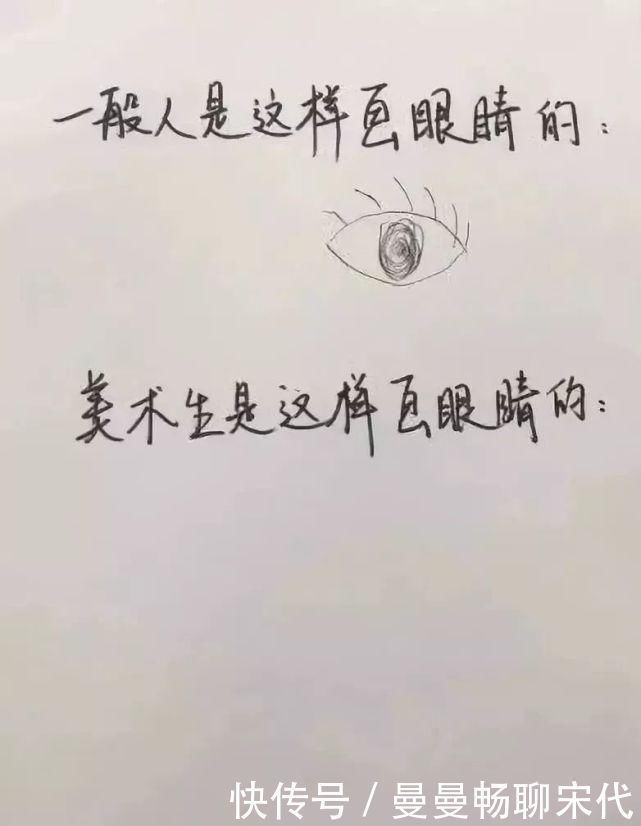 一般人是这样画眼睛的：
美术生是这样画眼睛的：
快传号 / 曼曼畅聊宋代